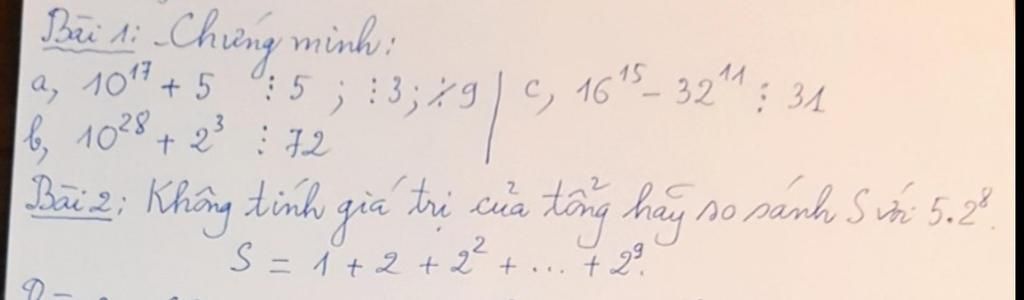 Bài 1: - Chứng minh:
a, 10¹⁷ + 5 ⋮ 5 ; ⋮ 3 ; ⋮̸ 9 | c, 16¹⁵ - 32¹¹ ⋮ 31
b, 10²⁸ + 2³ ⋮ 72
Bài 2: Không tính giá trị của tổng hãy so sánh S với 5.2⁸.
S = 1 + 2 + 2² + ... + 2⁹.